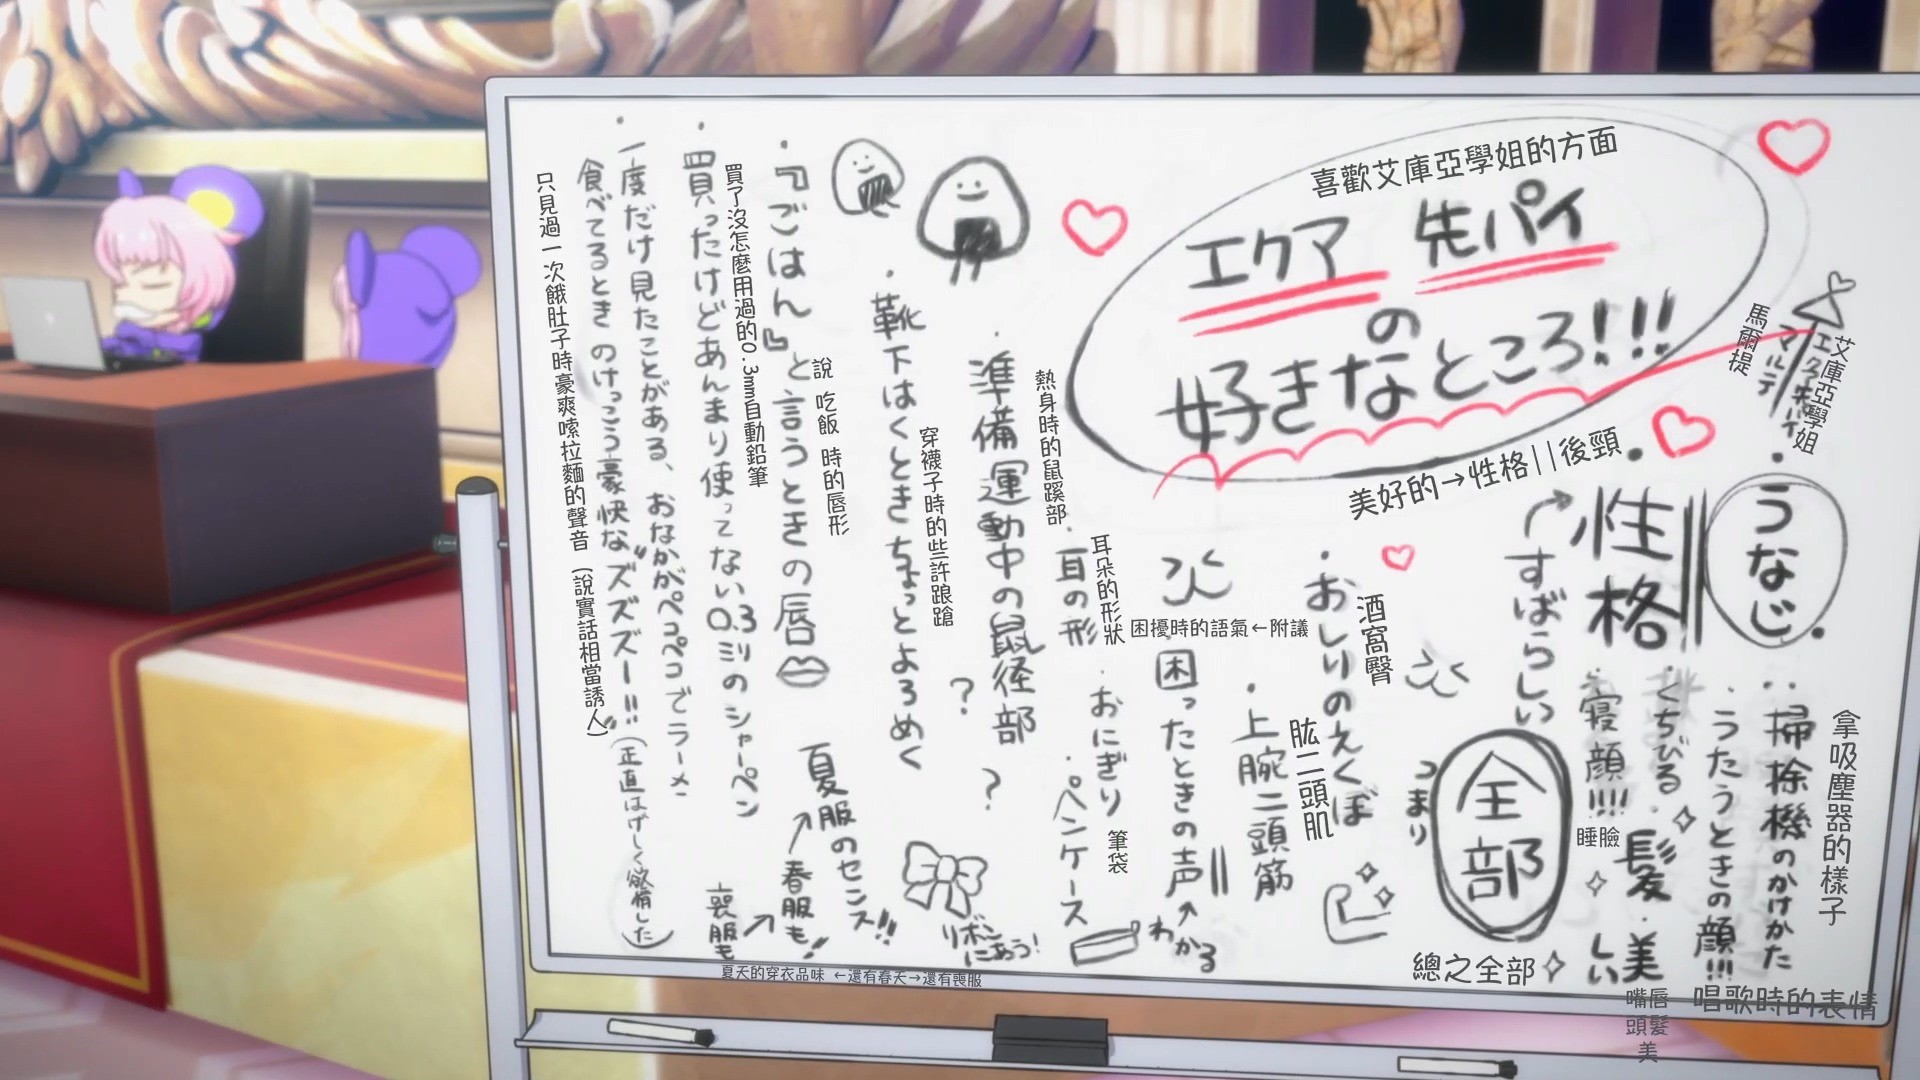 喜歡艾庫亞學姐的方面
エクア 先パイ
の
好きなところ!!!
艾庫亞學姐
エクア先パイ
マルテ
馬爾提
・うなじ
・性格
美好的→性格||後頸
すばらしい
拿吸塵器的樣子
・掃除機のかけかた
・うたうときの顔!!!
唱歌時的表情
・くちびる
・髪
・美しい
嘴唇
頭髮
美
・寝顔!!!!
睡臉
つまり
全部
總之全部
酒窩臀
・おしりのえくぼ
肱二頭肌
・上腕二頭筋
困擾時的語氣←附議
・困ったときの声
わかる
耳朵的形狀
・耳の形
・おにぎり
・ペンケース
筆袋
熱身時的鼠蹊部
・準備運動中の鼠径部
?
?
穿襪子時的些許踉蹌
・靴下はくとき ちょっとよろめく
リボンにあう!
說 吃飯 時的唇形
・『ごはん』と言うときの唇
夏服のセンス!!
春服も!
喪服も
夏天的穿衣品味 ←還有春天→還有喪服
買了沒怎麼用過的0.3mm自動鉛筆
・買ったけどあんまり使ってない0.3ミリのシャーペン
・一度だけ見たことがある、おなかがペコペコでラーメン
食べてるとき のけっこう豪快な"ズズズズー!!"(正直はげしく欲情した)
只見過一次餓肚子時豪爽嗦拉麵的聲音 (說實話相當誘人)